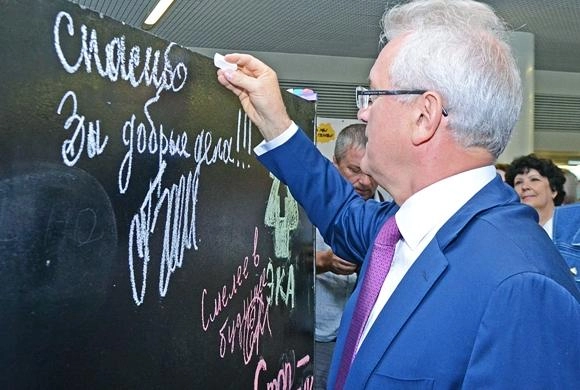 Спасибо
За добрые дела!!!
ЭКА
Смелее в
будущее